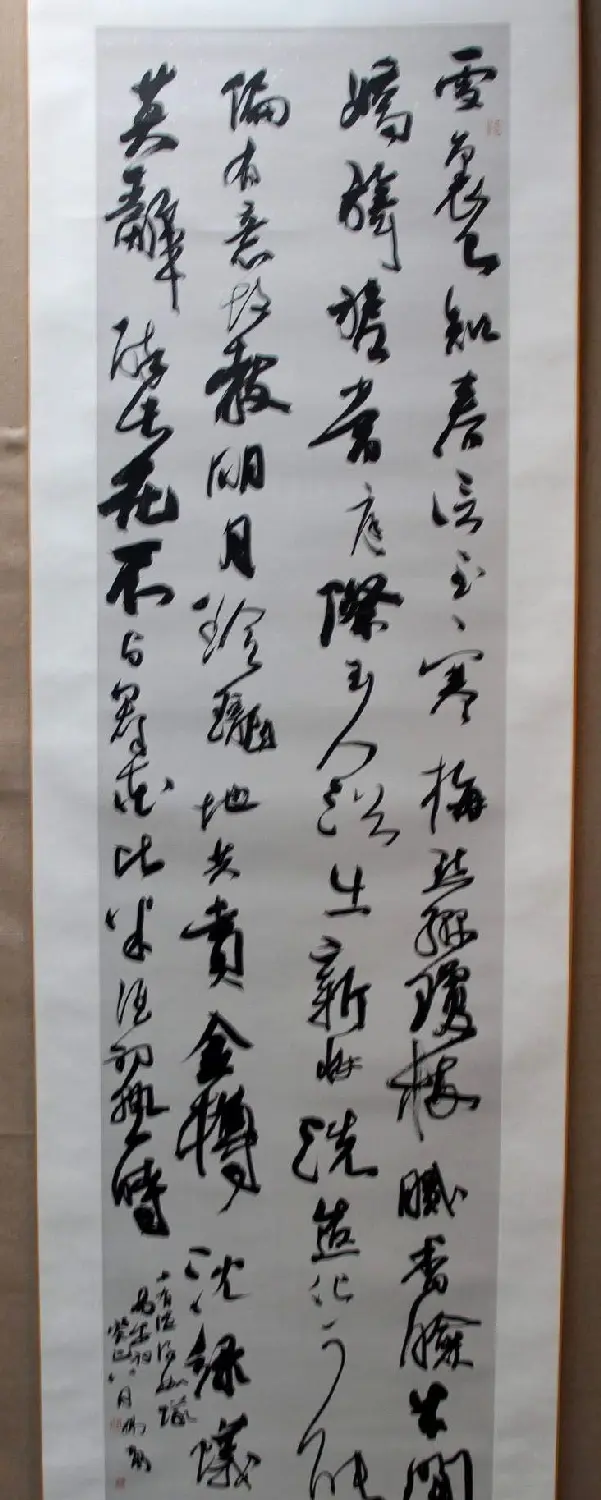 雪裏已知春信至寒梅點綴瓊枝膩香臉半開
嬌旖旎當庭際玉人浴出新妝洗造化可能
偏有意故教明月玲瓏地共賞金樽沈綠蟻
莫辭醉此花不与群花比
癸巳八月